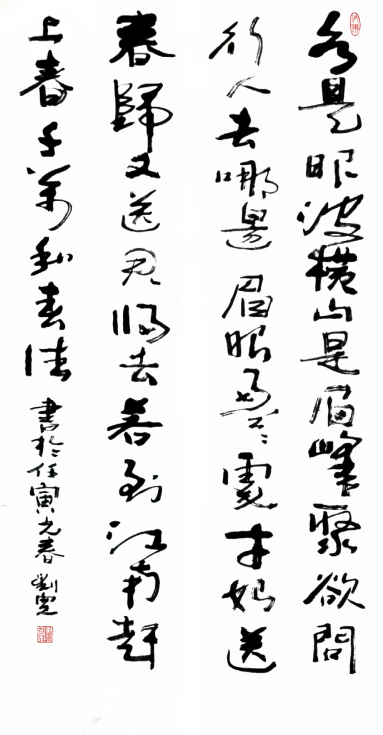 水是眼波横山是眉峰聚欲問
行人去哪邊眉眼盈盈處才始送
春歸又送君归去若到江南赶
上春千萬和春住
書於壬寅元春劉